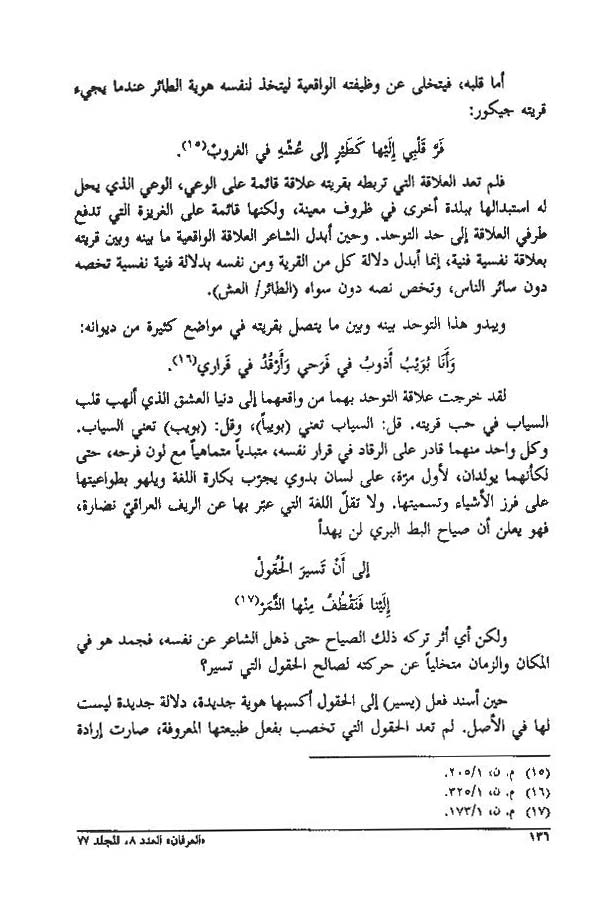 أما قلبه، فيتخلى عن وظيفته الواقعية ليتخذ لنفسه هوية الطائر عندما يجيء
قريته جيكور:
فَرَّ قَلْبِي إِلَيْها كَطَيْرٍ إلى عُشِّهِ في الغروبْ(١٥).
فلم تعد العلاقة التي تربطه بقريته علاقة قائمة على الوعي، الوعي الذي يحل
له استبدالها ببلدة أخرى في ظروف معينة، ولكنها قائمة على الغريزة التي تدفع
طرفي العلاقة إلى حد التوحد. وحين أبدل الشاعر العلاقة الواقعية ما بينه وبين قريته
بعلاقة نفسية فنية، إنما أبدل دلالة كل من القرية ومن نفسه بدلالة فنية نفسية تخصه
دون سائر الناس، وتخص نصه دون سواه (الطائر/ العش).
ويبدو هذا التوحد بينه وبين ما يتصل بقريته في مواضع كثيرة من ديوانه:
وَأَنَا بُوَيْبُ أَذوبُ في فَرَحي وَأَرْقُدُ في قَراري(١٦).
لقد خرجت علاقة التوحد بهما من واقعهما إلى دنيا العشق الذي ألهب قلب
السياب في حب قريته. قل: السياب تعني (بويباً)، وقل: (بويب) تعني السياب.
وكل واحد منهما قادر على الرقاد في قرار نفسه، متبدياً متماهياً مع لون فرحه، حتى
لكأنهما يولدان، لأول مرّة، على لسان بدوي يجرّب بكارة اللغة ويلهو بطواعيتها
على فرز الأشياء وتسميتها. ولا تقلّ اللغة التي عبّر بها عن الريف العراقيّ نضارة،
فهو يعلن أن صياح البط البري لن يهدأ
إلى أَنْ تَسيرَ الْحُقولْ
إِلَيْنا فَنَقْطُفُ مِنْها الثَّمَرْ(١٧)
ولكن أي أثر تركه ذلك الصياح حتى ذهل الشاعر عن نفسه، فجمد هو في
المكان والزمان متخلياً عن حركته لصالح الحقول التي تسير؟
حين أسند فعل (يسير) إلى الحقول أكسبها هوية جديدة، دلالة جديدة ليست
لها في الأصل. لم تعد الحقول التي تخصب بفعل طبيعتها المعروفة، صارت إرادة
(١٥) م. ن، ٢٠٥/١.
(١٦) م. ن، ٣٢٥/١.
(١٧) م. ن، ١٧٣/١.
١٣٦ «العرفان» العدد ٨، المجلد ٧٧